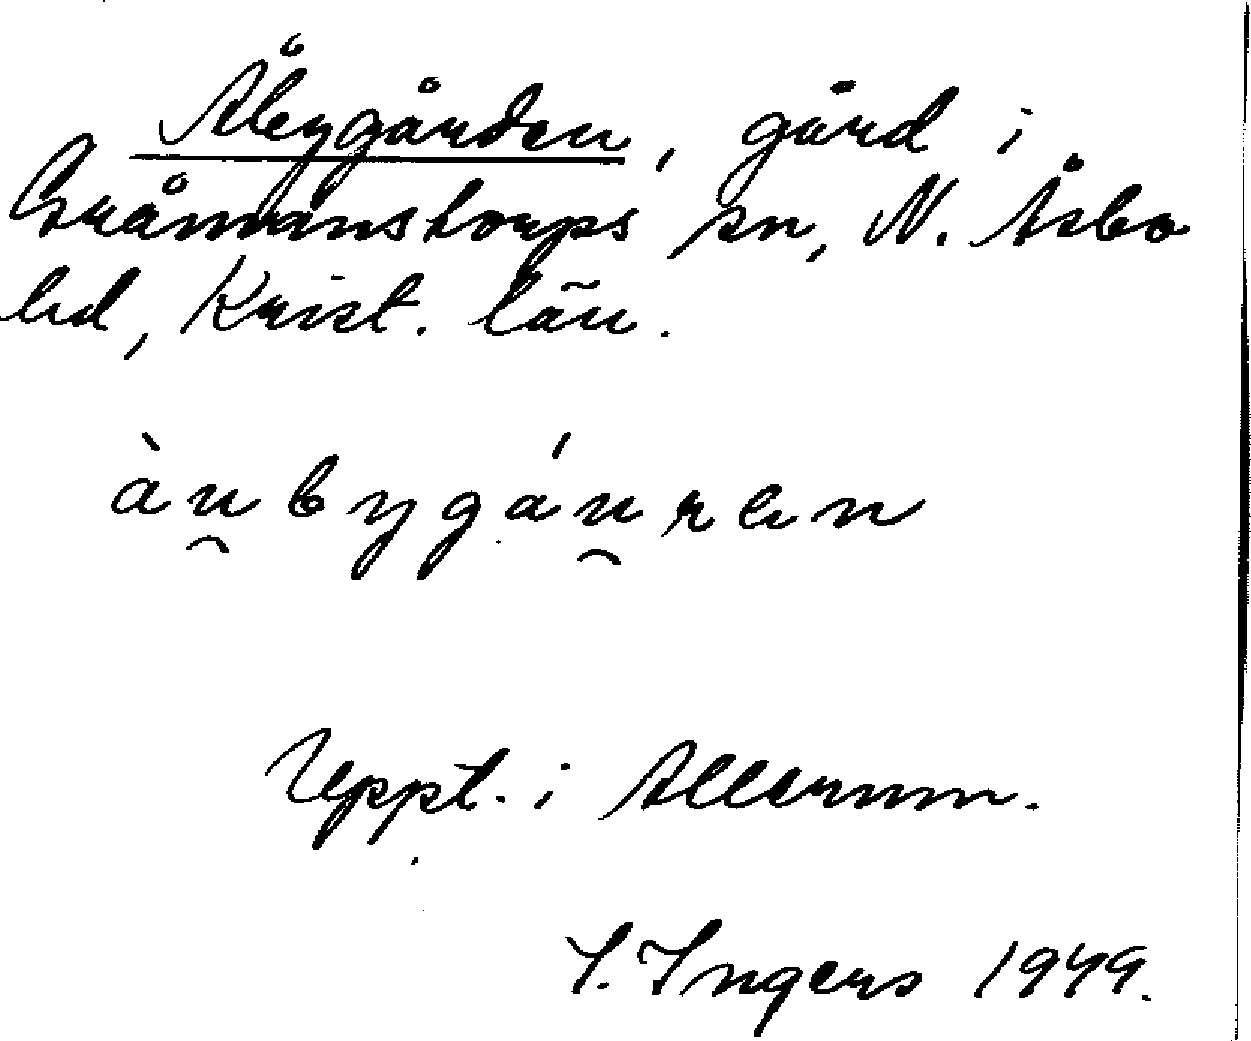 Åbygården, gård i
Gråmanstorps sn, N. Åsbo
hd, Krist. län.
àu̯bygáu̯ren
Uppt. i Allerum.
I. Ingers 1949.